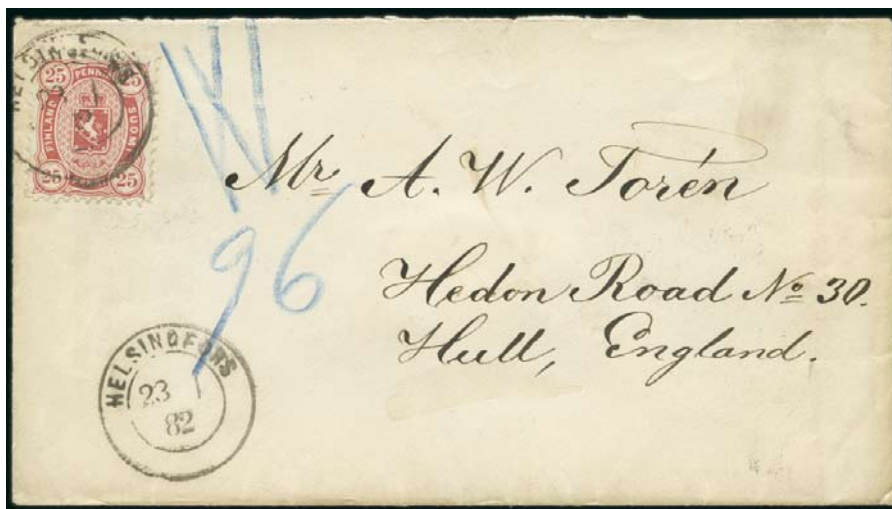 HELSINGFORS
23 I
82
25 PENNIÄ 25
FINLAND
SUOMI
25 25
W
96
Mr A. W. Torén
Hedon Road No 30.
Hull, England.
HELSINGFORS
23 I
82